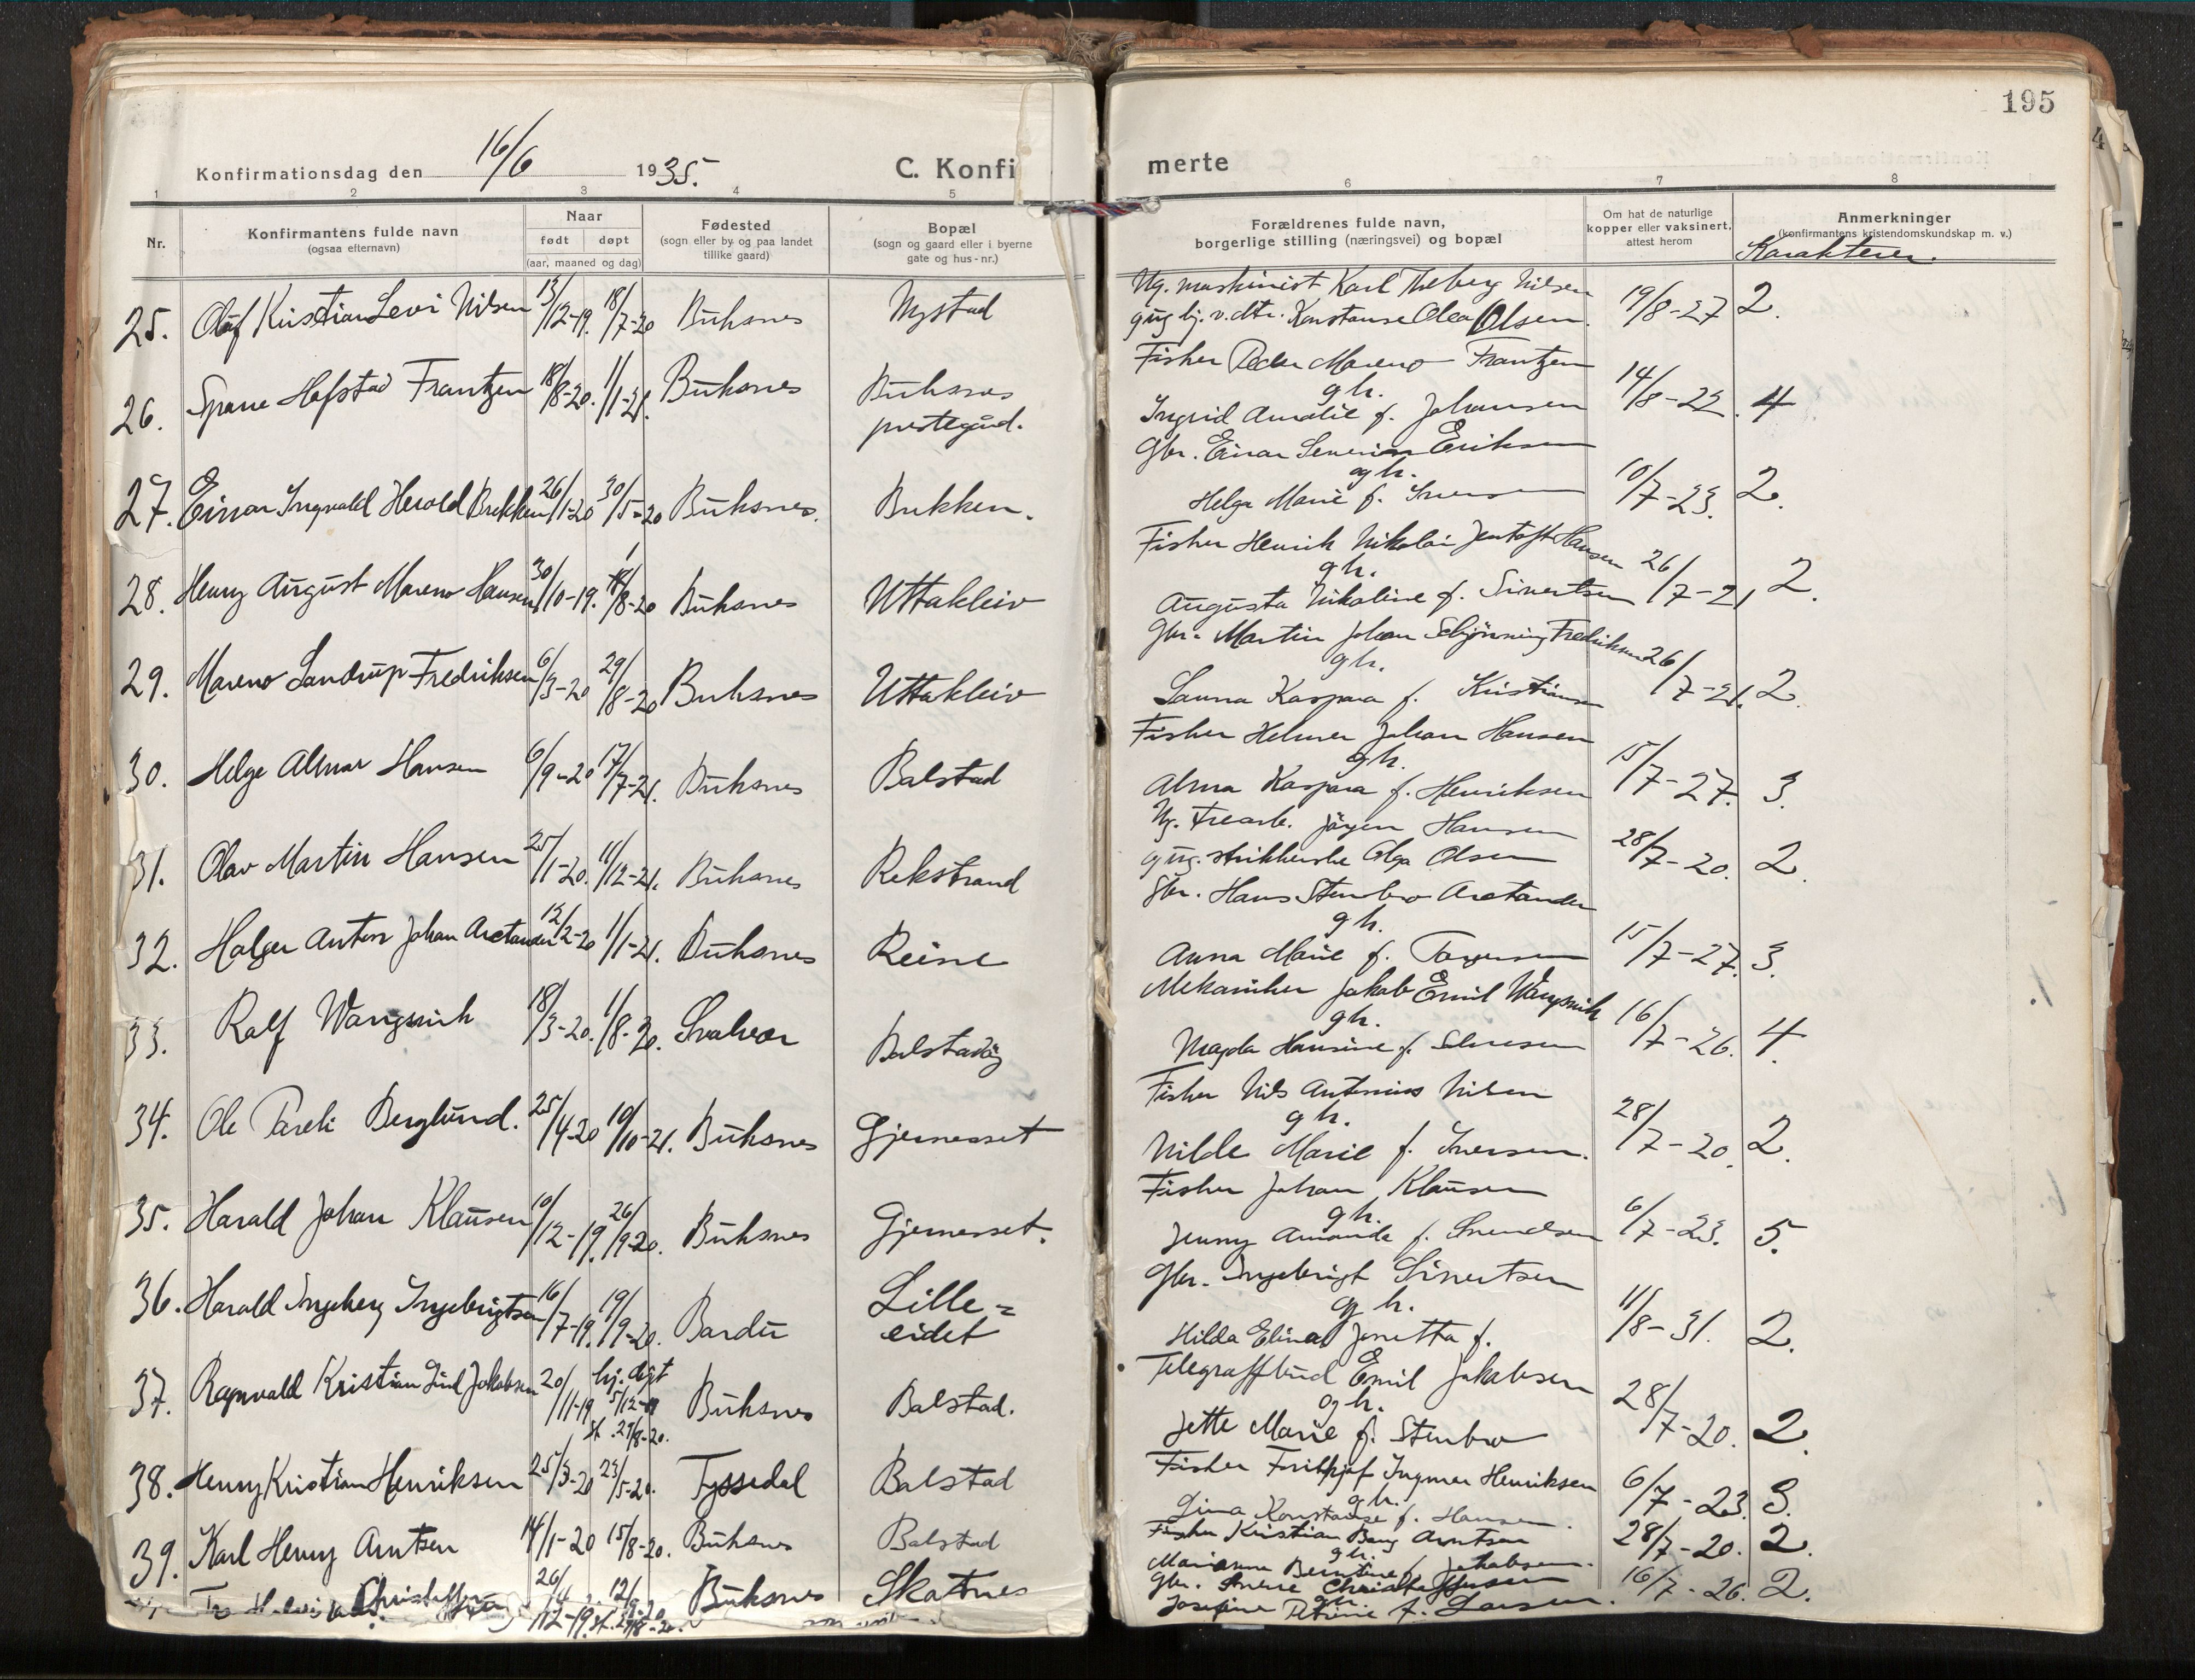 195
Konfirmationsdag den 16/6 1935.
C. Konfi merte
1 2 3 4 5 6 7 8
Nr.
Konfirmantens fulde navn
(ogsaa efternavn)
Naar
født døpt
(aar, maaned og dag)
Fødested
(sogn eller by og paa landet
tillike gaard)
Bopæl
(sogn og gaard eller i byerne
gate og hus-nr.)
Forældrenes fulde navn,
borgerlige stilling (næringsvei) og bopæl
Om hat de naturlige
kopper eller vaksinert,
attest herom
Anmerkninger
(konfirmantens kristendomskundskap m. v.)
Karakterer.
25. Olaf Kristian Levi Nilsen 13/12-19. 18/7-20 Buksnes Mystad
Ug. maskinist Karl Theberg Nilsen
Konstanse Olea Olsen. 19/8-27 2.
26. Hofstad Frantzen 18/8-20. 1/1-21. Buksnes Buksnes
prestegård.
Fisker Peder Mareno Frantzen
g h.
Ingrid Amalie f. Johansen 14/8-22. 4
27. Einar Ingvald Herold Brekken 26/1-20 30/5-20 Buksnes. Brekken.
Gbr. Einar Severin Eriksen
og h.
Helga Marie f. Iversen 10/7-23. 2.
28. Henry August Mareno Hansen 30/10-19. 1/8-20 Buksnes Uttakleiv
Fisker Henrik Nikolai Jentoft Hansen
g h.
Augusta Nikoline f. Sivertsen 26/7-21 2.
29. Mareno Sandrup Fredriksen 6/3-20 29/8-20 Buksnes Uttakleiv
Gbr. Martin Johan Schjønning Fredriksen
g h.
Laura Kaspara f. Kristians 26/7-21. 2.
30. Helge Almar Hansen 6/9-20 17/7-21. Buksnes Balstad
Fisker Helmer Johan Hansen
g h.
Alma Kaspara f. Henriksen 15/7-27. 3.
31. Olav Martin Hansen 25/1-20. 11/12-21. Buksnes Rekstrand
Ug. Jørgen Hansen
g ug. strikkerske Olga Olsen 28/7-20. 2.
32. Holger Anton Johan Arctander 12/2-20 1/1-21. Buksnes Reine
Gbr. Hans Stenbro Arctander
g h.
Anna Marie f. 15/7-27. 3.
33. Ralf Wangsvik 18/3-20. 1/8-20. Svolvær Balstad
Mekaniker Jakob Emil Wangsvik
g h.
Magda Hansine f. 16/7-26. 4.
34. Ole Pareli Berglund. 25/4-20 10/10-21. Buksnes Gjernesset
Fisker Nils Antonius Nilsen
g h.
Nilde Marie f. Iversen. 28/7-20. 2.
35. Harald Johan Klausen 10/12-19. 26/9-20. Buksnes Gjernesset.
Fisker Johan Klausen
g h.
Jenny Amanda f. Svendsen 6/7-23. 5.
36. Harald Ingeberg Ingebrigtsen 16/7-19. 19/9-20. Bardu Lille=
eidet
Gbr. Ingebrigt Sivertsen
og h.
Hilda Elina Jonetta f. 11/8-31. 2.
37. Ragnvald Kristian Lind Jakobsen 20/11-19 hj. døpt
5/12-19
st. 29/8-20. Buksnes Balstad.
Telegrafbud Emil Jakobsen
og h.
Jette Marie f. Stenbro 28/7-20. 2.
38. Henry Kristian Henriksen 25/3-20 23/5-20. Tyssedal Balstad
Fisker Frithjof Ingmer Henriksen
g h.
Lina Konstanse f. Hansen. 6/7-23. 3.
39. Karl Henry Arntsen 14/1-20 15/8-20. Buksnes Balstad
Fisker Kristian Bang Arntsen
g h.
Marianne Berntine f. Jakobsen. 28/7-20. 2.
Christoffersen 26/12-19. 12/ st. 29/8-20. Buksnes Skotnes
Gbr. Christoffersen
g h.
Josefine Petrine f. Larsen. 16/7-26. 2.